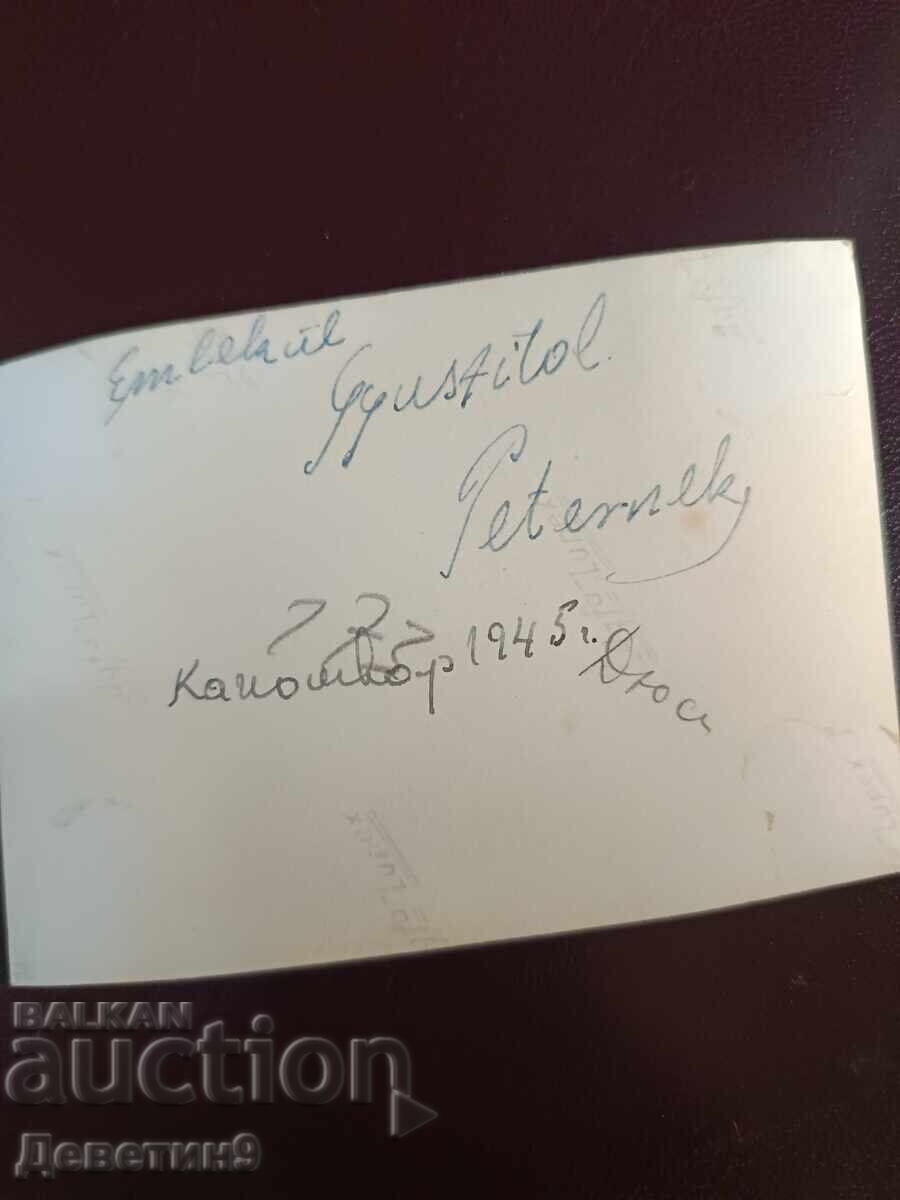 Emlekül
Gyusfitol
Peternek
73
Капошвар 1945 г. Дюси
BALKAN
auction
Деветин9